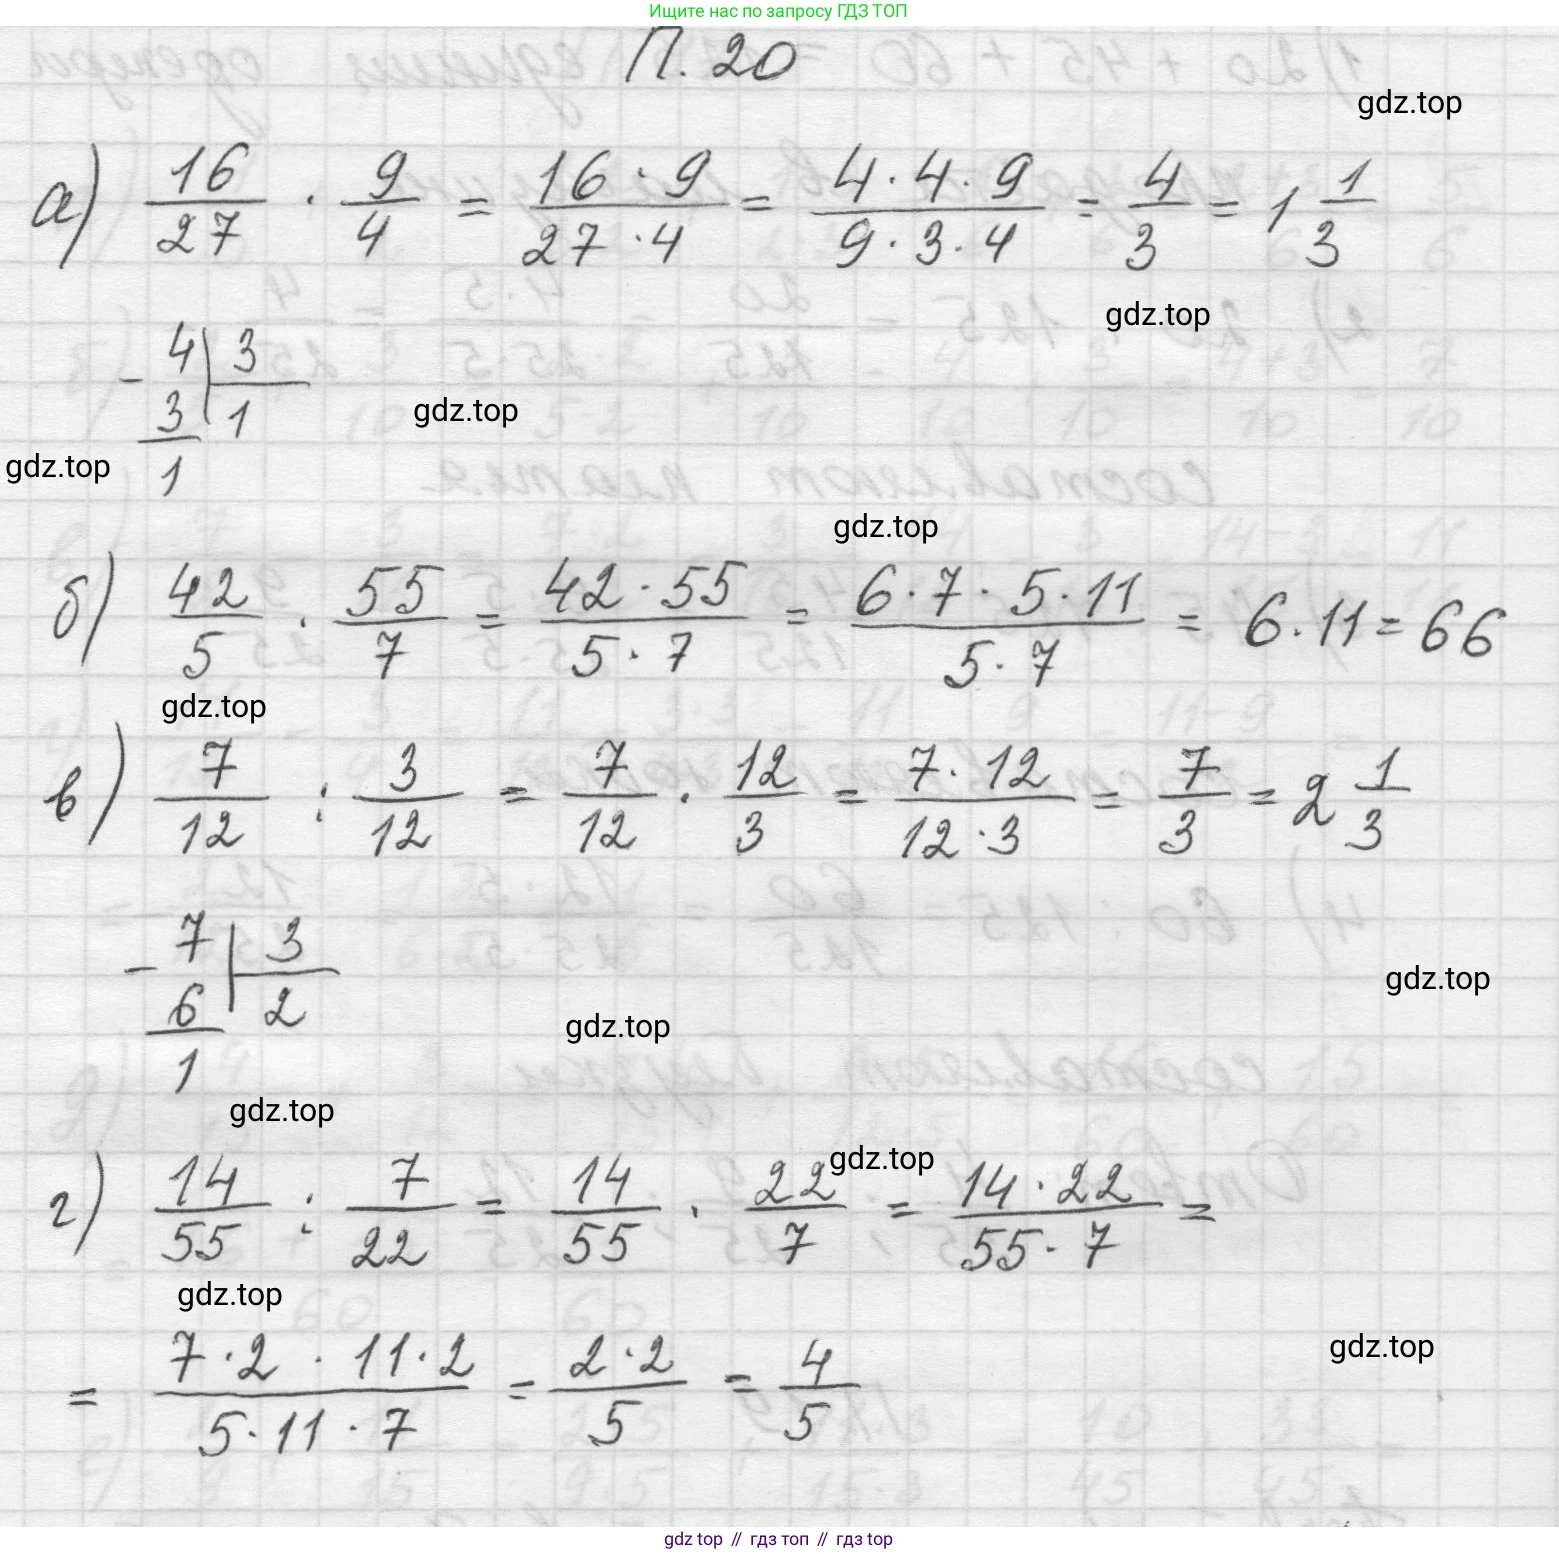 Ищите нас по запросу ГДЗ ТОП
П. 20
gdz.top
а) 16/27 · 9/4 = 16 · 9/27 · 4 = 4 · 4 · 9/9 · 3 · 4 = 4/3 = 1 1/3
gdz.top
- 4 | 3
3 | 1
gdz.top
gdz.top
1
gdz.top
б) 42/5 · 55/7 = 42 · 55/5 · 7 = 6 · 7 · 5 · 11/5 · 7 = 6 · 11 = 66
gdz.top
в) 7/12 : 3/12 = 7/12 · 12/3 = 7 · 12/12 · 3 = 7/3 = 2 1/3
- 7 | 3
6 | 2
gdz.top
gdz.top
1
gdz.top
gdz.top
г) 14/55 : 7/22 = 14/55 · 22/7 = 14 · 22/55 · 7 =
gdz.top
= 7 · 2 · 11 · 2/5 · 11 · 7 = 2 · 2/5 = 4/5
gdz.top
gdz top // гдз топ // гдз top